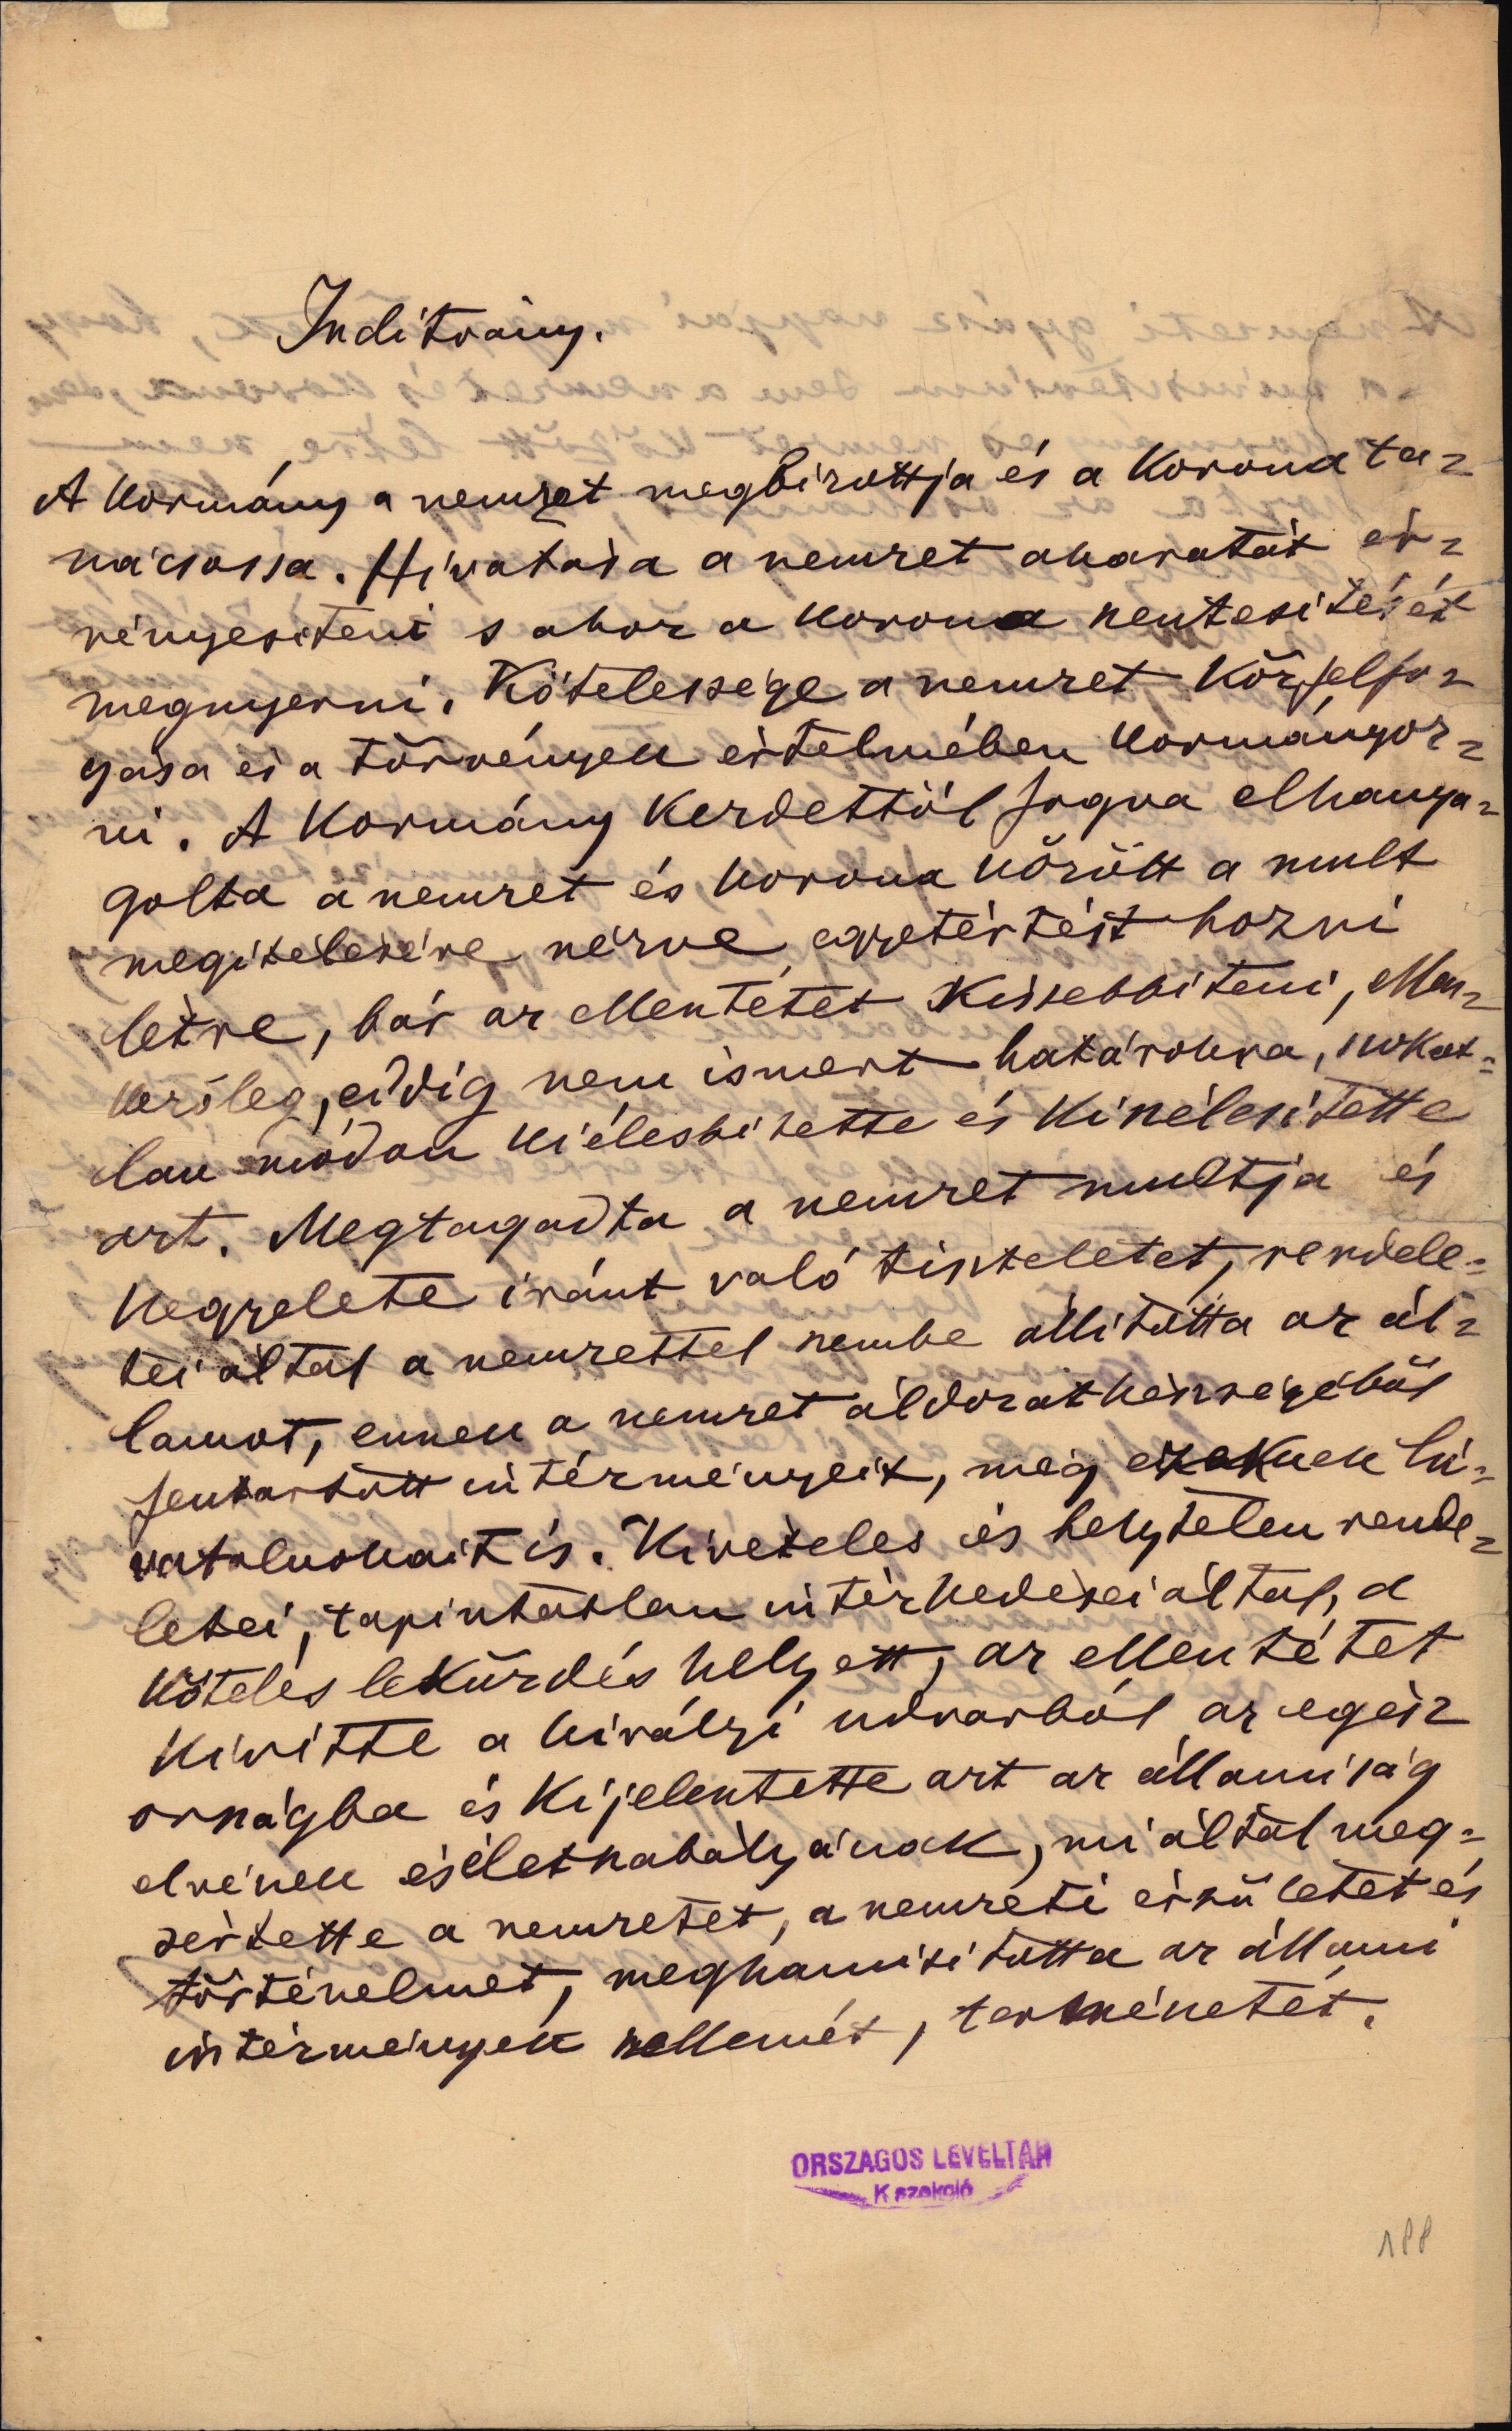 Inditvány.
A kormány a nemzet megbizottja és a Korona ta-
nácsossa. Hivatása a nemzet akaratát ér-
vényesiteni s ahoz a korona szentesitését
megnyerni. Kötelessége a nemzet közfelfo-
gása és a törvények értelmében kormányoz-
ni. A Kormány kezdettöl fogva elhanya-
golta a nemzet és korona között a mult
megitélésére nézve egyetértést hozni
létre, bár az ellentétet kissebbiteni, ellen-
kezőleg, eddig nem ismert határokra, szokat-
lan módon kiélesbitette és kiszélesitette
azt. Megtagadta a nemzet multja és
kegyelete iránt való tiszteletet, rendele-
tei által a nemzettel szembe állitotta az ál-
lamot, ennek a nemzet áldozatkészségéböl
fentartott intézményeit, még ezeknek hi-
vatalnokait is. Kivételes és helytelen rende-
letei, tapintatlan intézkedései által, a
köteles leküzdés helyett, az ellentétet
kivitte a királyi udvarból az egész
országba és kijelentette azt az államiság
elvének és életszabályának, mi által meg-
sértette a nemzetet, a nemzeti érzületet és
történelmet, meghamisitotta az állami
intézmények szellemét, természetét.
ORSZAGOS LEVELTAR
K szekció
188